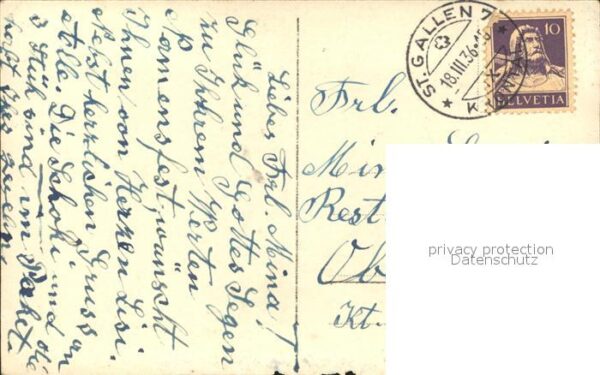 Liebes Frl. Mina!
Glük und Gottes Segen
zu Ihrem Werten
Namensfest wünscht
Ihnen von Herzen Lisi.
Nebst herzlichen Gruss an
alle. Die Schoki und die
3 Stük sind im Paket.
ST. GALLEN 7
18.III.36
10
HELVETIA
Frl.
Min
Rest
Ob
Kt.
privacy protection
Datenschutz